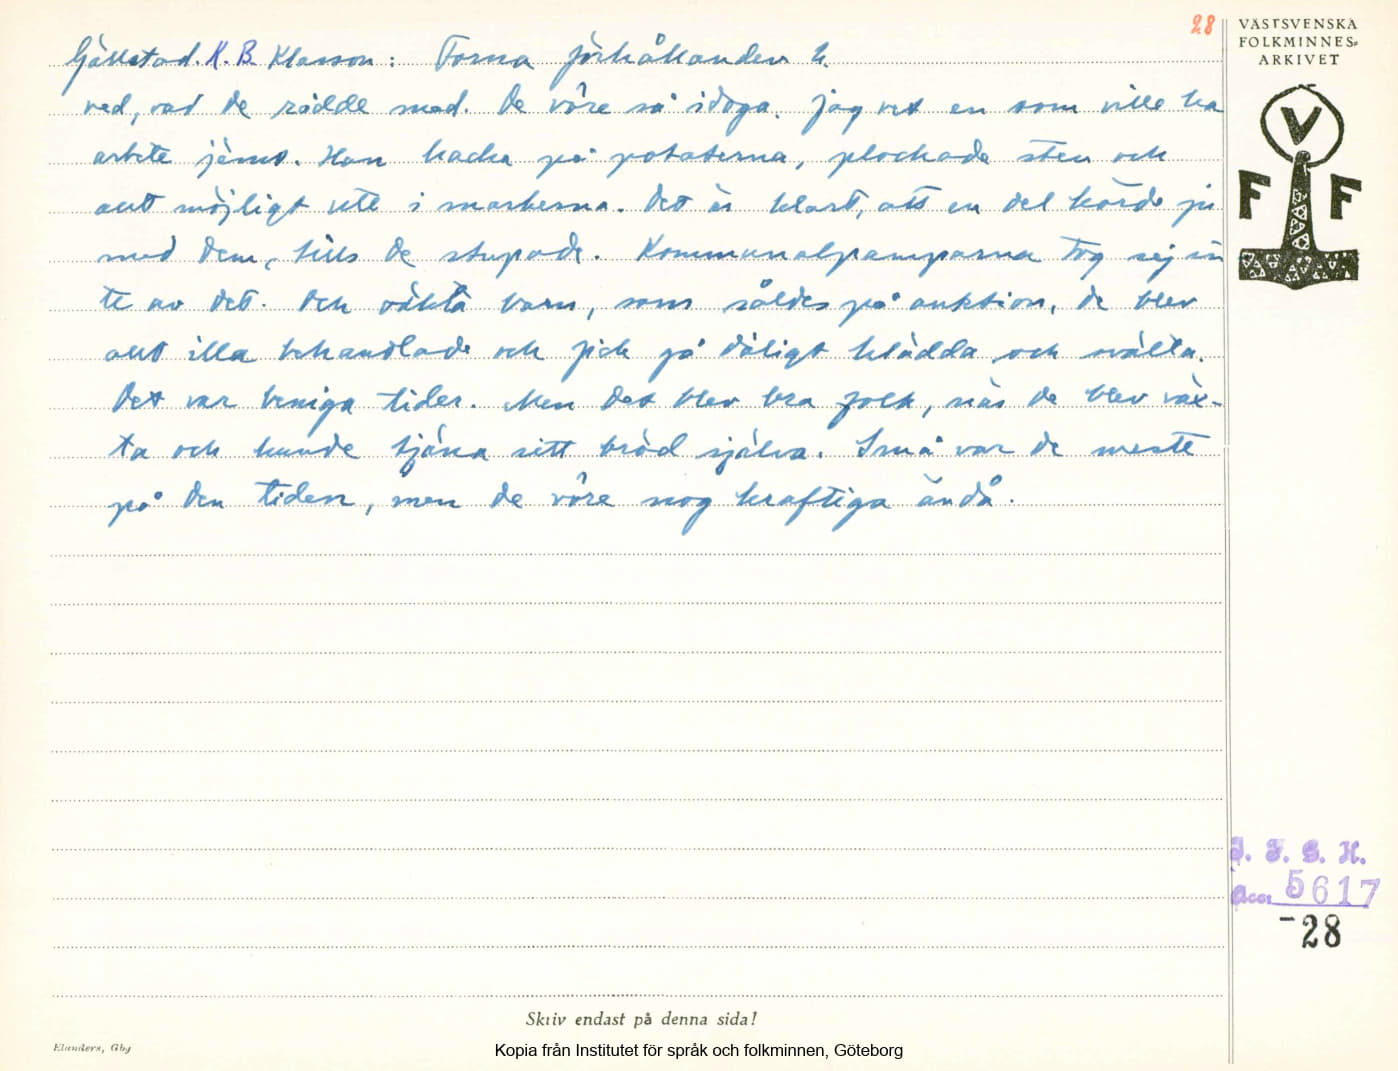 28
VÄSTSVENSKA
FOLKMINNES-
ARKIVET
V
F F
Gällstad. K. B. Klasson: Forna förhållanden h.
ved, vad de rådde med. De vôre så idoga. Jag vet en som ville ha
arbete jämt. Han hacka på potaterna, plockade sten och
allt möjligt ute i markerna. Det är klart, att en del körde ju
med dem, tills de stupade. Kommunalpamparna tog sej in
te av det. Och oäkta barn, som såldes på auktion, de blev
allt illa behandlade och fick gå dåligt klädda och svälta.
Det var beniga tider. Men det blev bra folk, när de blev väx-
ta och kunde tjäna sitt bröd själva. Små var de meste
på den tiden, men de vôre nog kraftiga ändå.
I. F. G. H.
Acc. 5617
-28
Skriv endast på denna sida!
Elanders, Gbg
Kopia från Institutet för språk och folkminnen, Göteborg